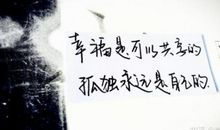 幸福是可以共享的
孤独永远是自己的.